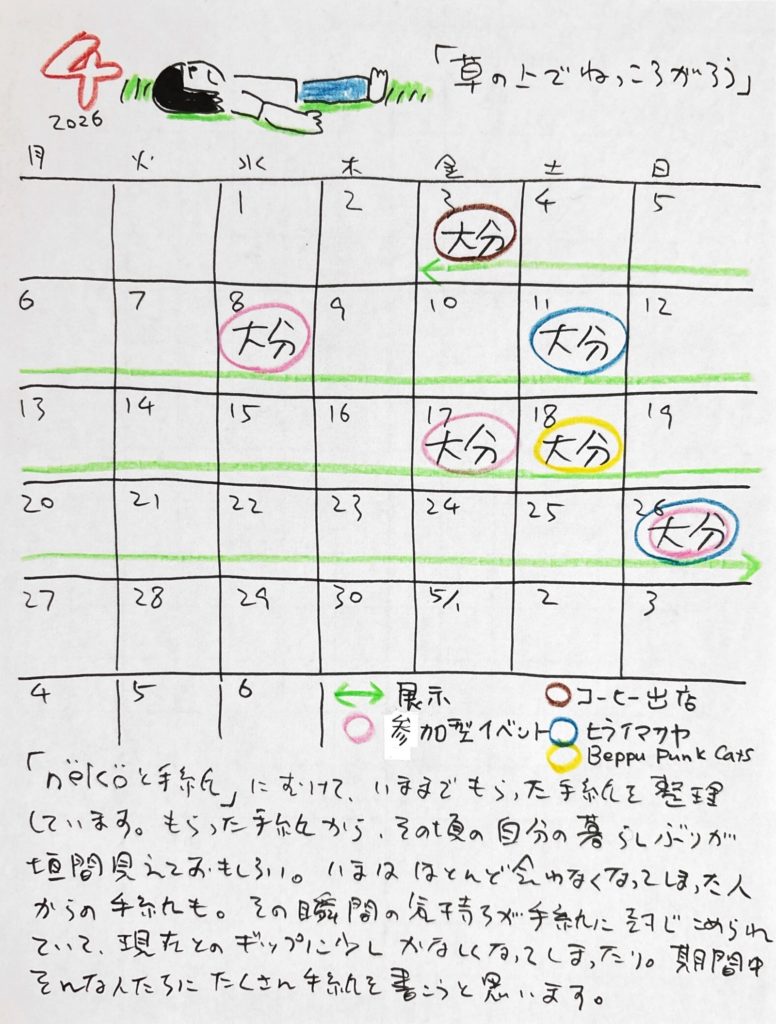 4
2026
「草の上でねっころがろう」
月 火 水 木 金 土 日
1 2 3 4 5
大分
6 7 8 9 10 11 12
大分 大分
13 14 15 16 17 18 19
大分 大分
20 21 22 23 24 25 26
大分
27 28 29 30 5/1 2 3
4 5 6
展示 コーヒー出店
参加型イベント ヒライマサヤ
Beppu Punk Cats
「nëköと手紙」にむけて、いままでもらった手紙を整理
しています。もらった手紙から、その頃の自分の暮らしぶりが
垣間見えておもしろい。いまはほとんど会わなくなってしまった人
からの手紙も。その瞬間の気持ちが手紙に封じこめられ
ていて、現在とのギャップに少しかなしくなってしまったり。期間中
そんな人たちにたくさん手紙を書こうと思います。